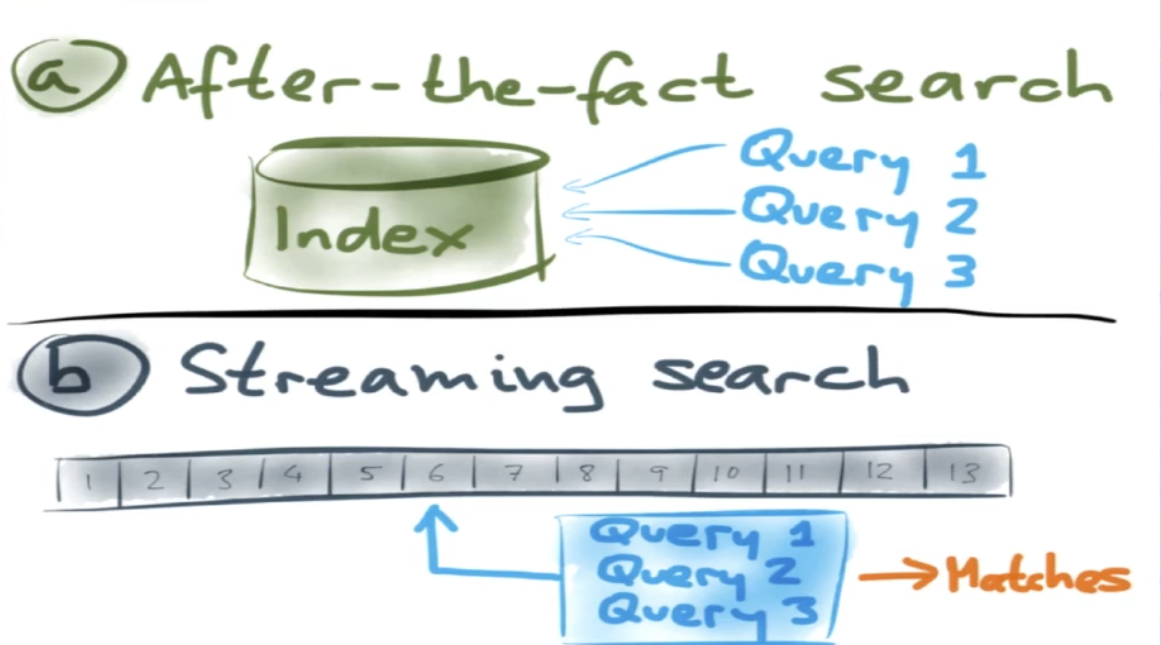 a After-the-fact search
Index
Query 1
Query 2
Query 3
b Streaming search
1 2 3 4 5 6 7 8 9 10 11 12 13
Query 1
Query 2
Query 3
Matches